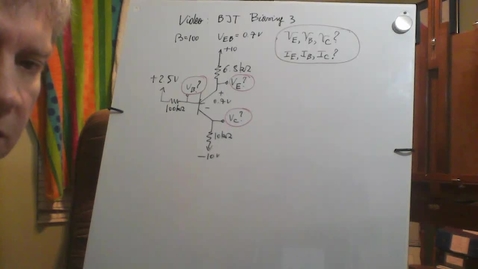 Video BJT Biasing 3
β=100 VEB = 0.7V
VE, VB, VC?
IE, IB, IC?
+10
6.8kΩ
+2.5V
VB?
VE?
+
0.7V
-
100kΩ
VC?
10kΩ
-10V